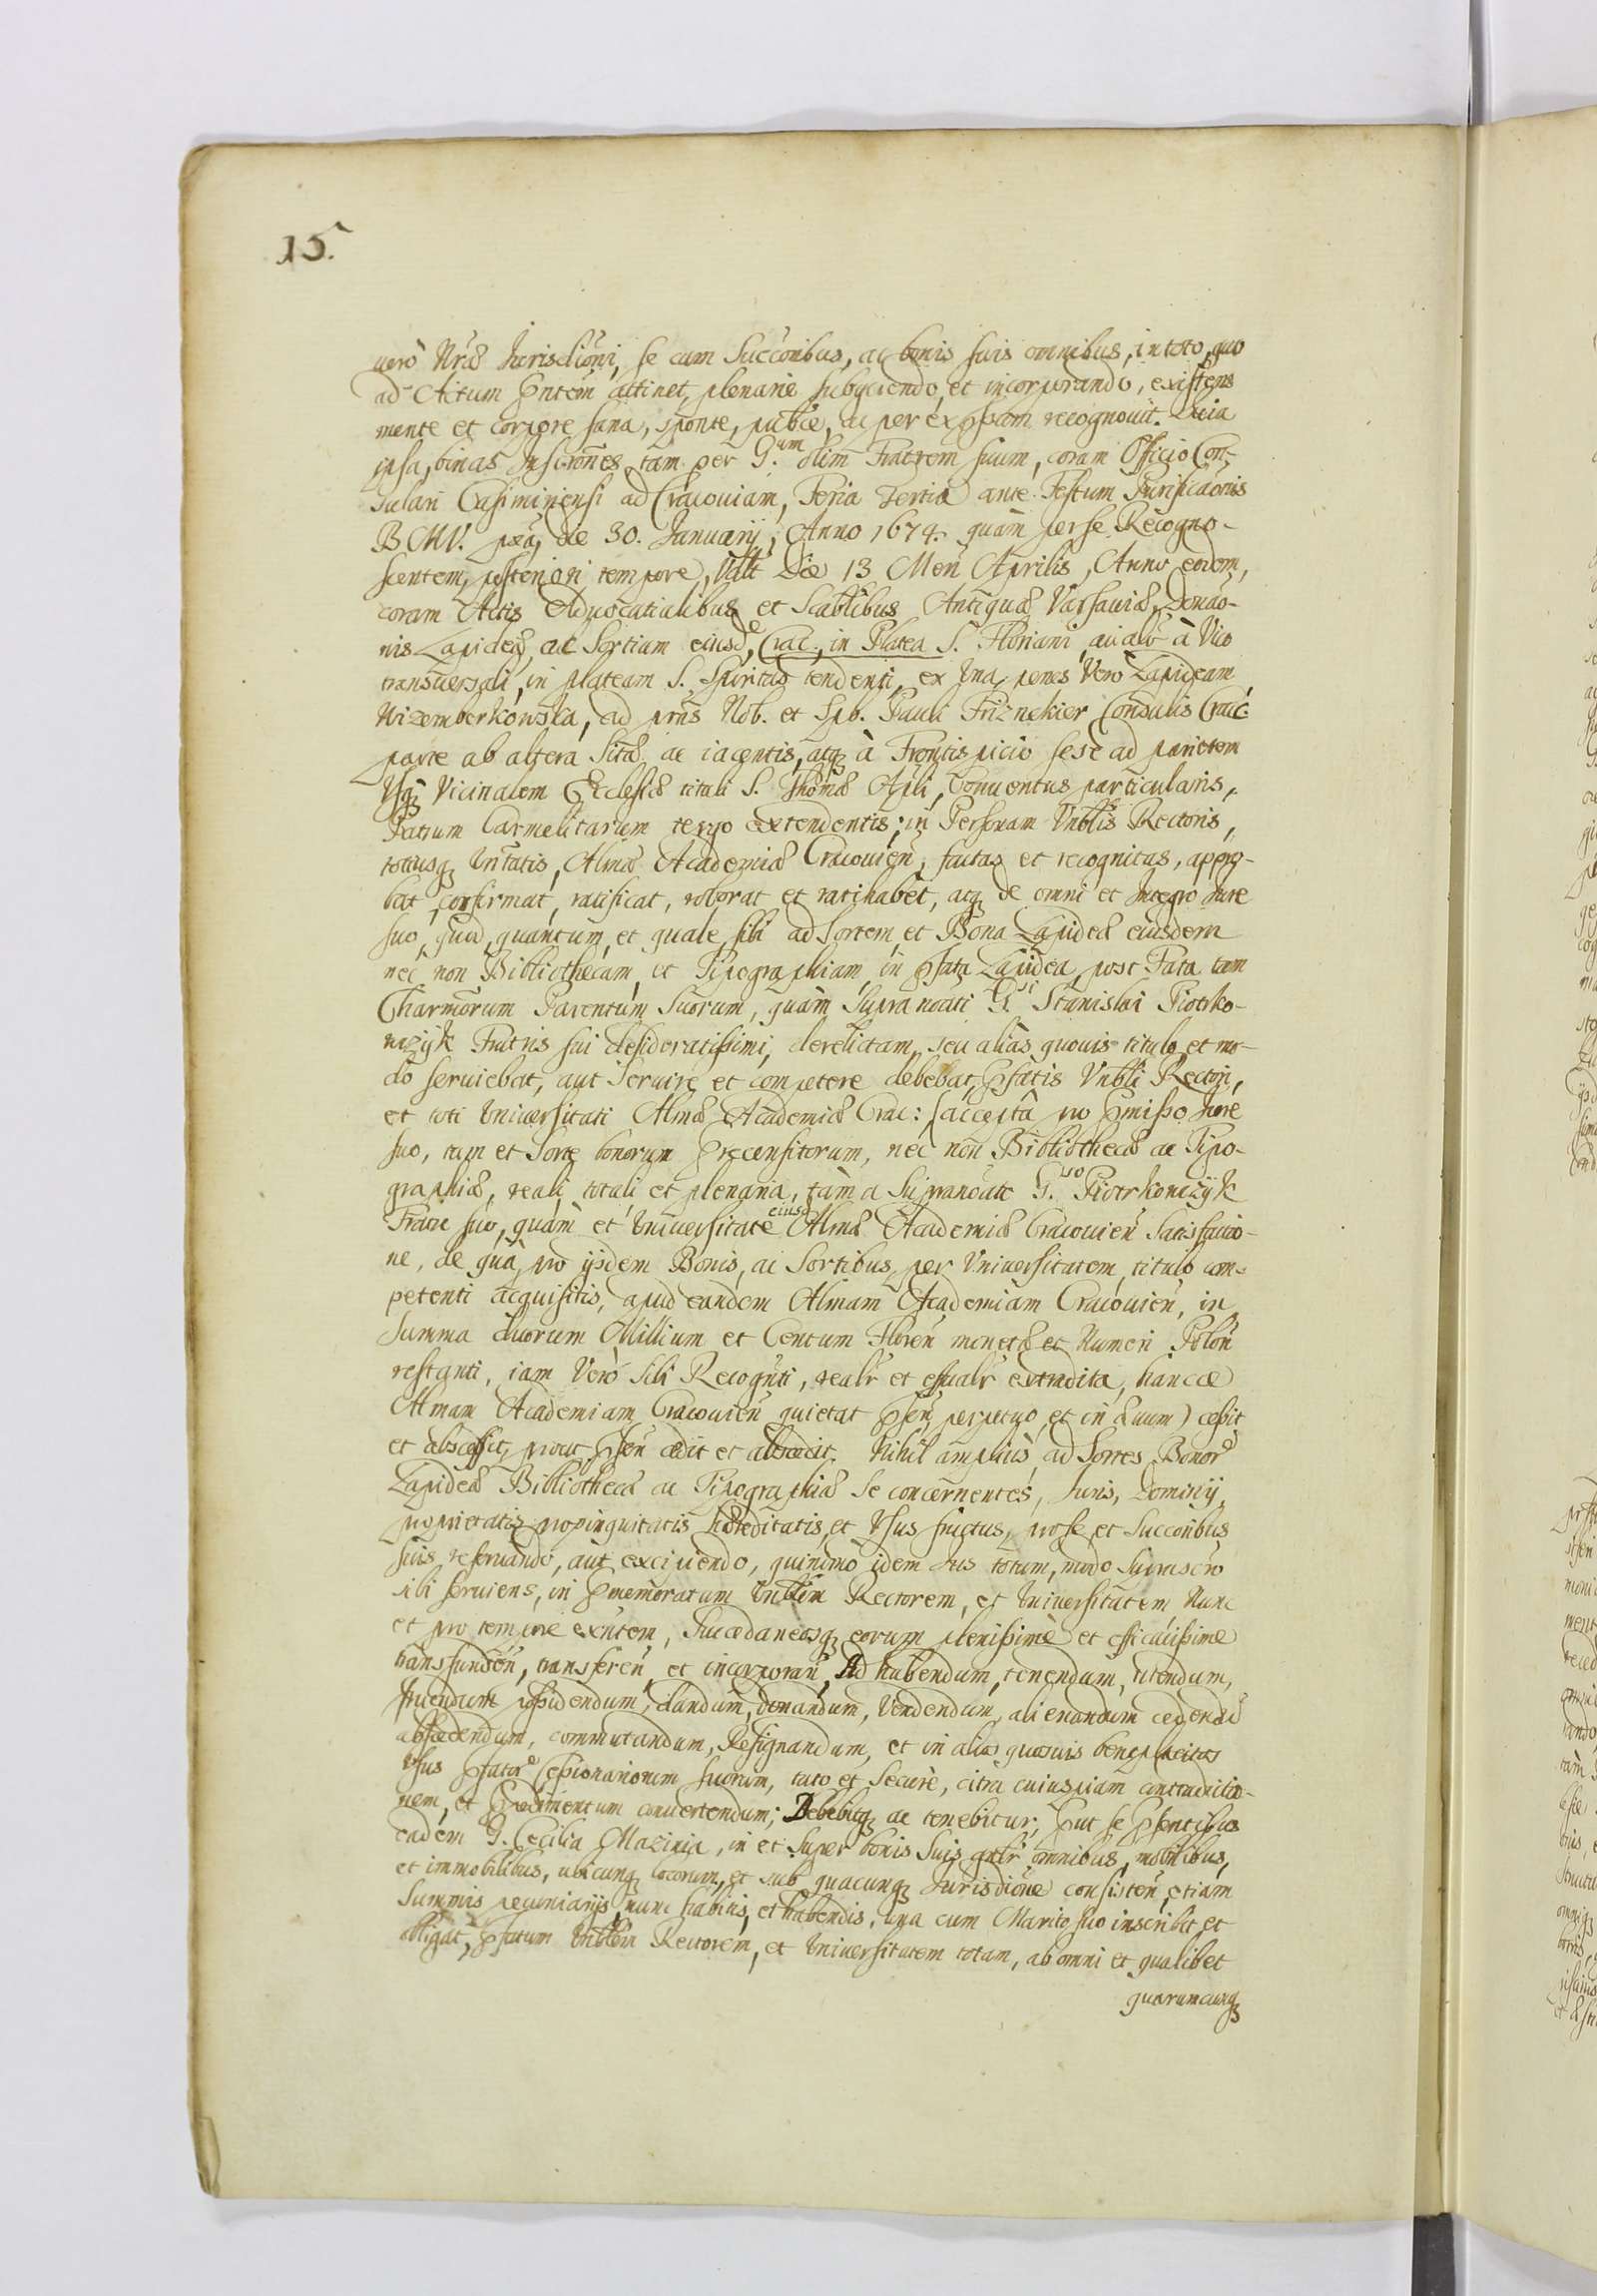 15.
verò Nræ Jurisdictioni, se cum Succoribus, ac bonis suis omnibus, in toto, quo
ad Actum Pntem attinet, plenarie subyciendo, et incorporando, existens
mente et corpore sana, sponte, publce, ac per expssum recognouit. Quia
ipsa, binas Inscriones, tam per G.um olim Fratrem suum, coram Officio Con-
sulari Casimiriensi ad Cracouiam, Feria Tertia ante Festum Purificaonis
B M V. pxa, die 30. Januarij, Anno 1674. quàm per se Recogno-
scentem, posteriori tempore, Vdlt Die 13 Men Aprilis, Anno eodem,
coram Actis Aduocatialibus et Scablibus Antiquæ Varsauiæ, Donao-
nis Lapideæ, ac Sortium eiusd, Crac. in Platea S. Floriani, à Vico
transuersali, in plateam S. Spiritus tendenti, ex Vna, penes Vero Lapideam
Wizemberkowska, ad prns Nob. et Spb. Pauli Friznekier Consulis Crac.
parte ab altera Sitæ ac iacentis, atq à Frontispicio sese ad parietem
Usq Vicinalem Ecclesiæ tituli S. Thomæ Apli, Conuentus particularis,
Fratrum Carmelitarum tergo extendentis; in Personam Vnblis Rectoris,
totiusq Vnitatis, Almæ Academiæ Cracouien, factas et recognitas, appro-
bat, confirmat, ratificat, roborat et ratihabet, atq de omni et Integro Jure
suo, quod, quantum, et quale, sibi ad Sortem, et Bona Lapideæ eiusdem
nec non Bibliothecam, et Tipographiam, in Pfata Lapidea, post Fata tam
Charmorum Parentum Suorum, quàm Supranoati G.si Stanislai Piotrko-
wczyk Fratris sui desideratissimi, derelictam, seu aliàs quouis titulo et mo-
do seruiebat, aut Seruire et competere debebat, Pfatis Vnbli Rectori,
et toti Vniuersitati Almæ Academiæ Crac: (acceptâ pro Pmisso Jure
suo, tam et Sorte bonorum Precensitorum, nec non Bibliothecæ ac Tipo-
graphiæ, reali, totali et plenaria, tàm a Supranoato G.so Piotrkowczyk
Fratre suo, quàm et Vniuersitate eiusd Almæ Academiæ Cracouien Satisfactio-
ne, de quâ pro ijsdem Bonis, ac Sortibus, per Vniuersitatem, titulo com-
petenti acquisitis, apud eandem Almam Academiam Cracouien, in
Summa duorum Millium et Centum Floren monetæ et Numeri Polon
restanti, iam Verò Sibi Recognti, realr et effualr extradita, hancce
Almam Academiam Cracouien quietat Psen, perpetuo, et in æuum) cessit
et abscessit, prout Psen cedit et abscedit. Nihil ampliùs, ad Sortes Bonor
Lapideæ Bibliothecæ ac Tipographiæ Se concernentes, Juris, Dominij,
proprietatis propinquitatis hæreditatis, et Vsus fructus, pro se, et Succoribus
suis reseruando, aut excipiendo, quinimo idem Jus totum, modo Suprascro
sibi seruiens, in Pmemoratum Vnblem Rectorem, et Vniuersitatem Nunc
et pro tempore exntem, Succedaneosq eorum plenissimè et efficacissime
transfunden, transferen, et incorporan, Ad habendum, tenendum, utendum,
fruendum possidendum, dandum, donandum, Vendendum, alienandum cedendu
abscedendum, commutandum, Resignandum, et in alios quosuis beneplacitos
Vsus Pfator Cessionariorum suorum, tuto et Securè, citra cuiuspiam contradictio-
nem, et Pedimentum conuertendum; Debebitq ac tenebitur, Put se Psentibus
eadem G. Cecilia Maziria, in et Super bonis Suis gnlr omnibus, mobilibus,
et immobilibus, ubicunq locorum, et sub quacunq Jurisdione consisten, etiam
Summis pecuniarijs nunc habitis, et habendis, una cum Marito suo inscribit et
obligat, Pfatum Vnblem Rectorem, et Vniuersitatem totam, ab omni et qualibet
quarumcunq